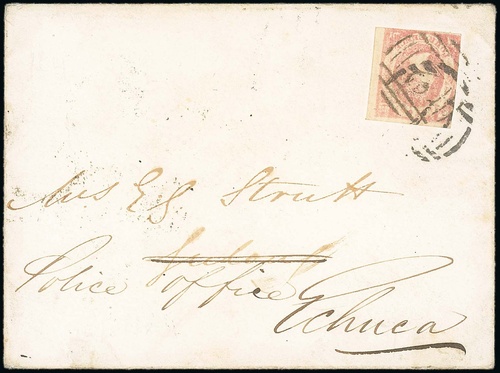 Mrs E S Strutt
Police office
Echuca